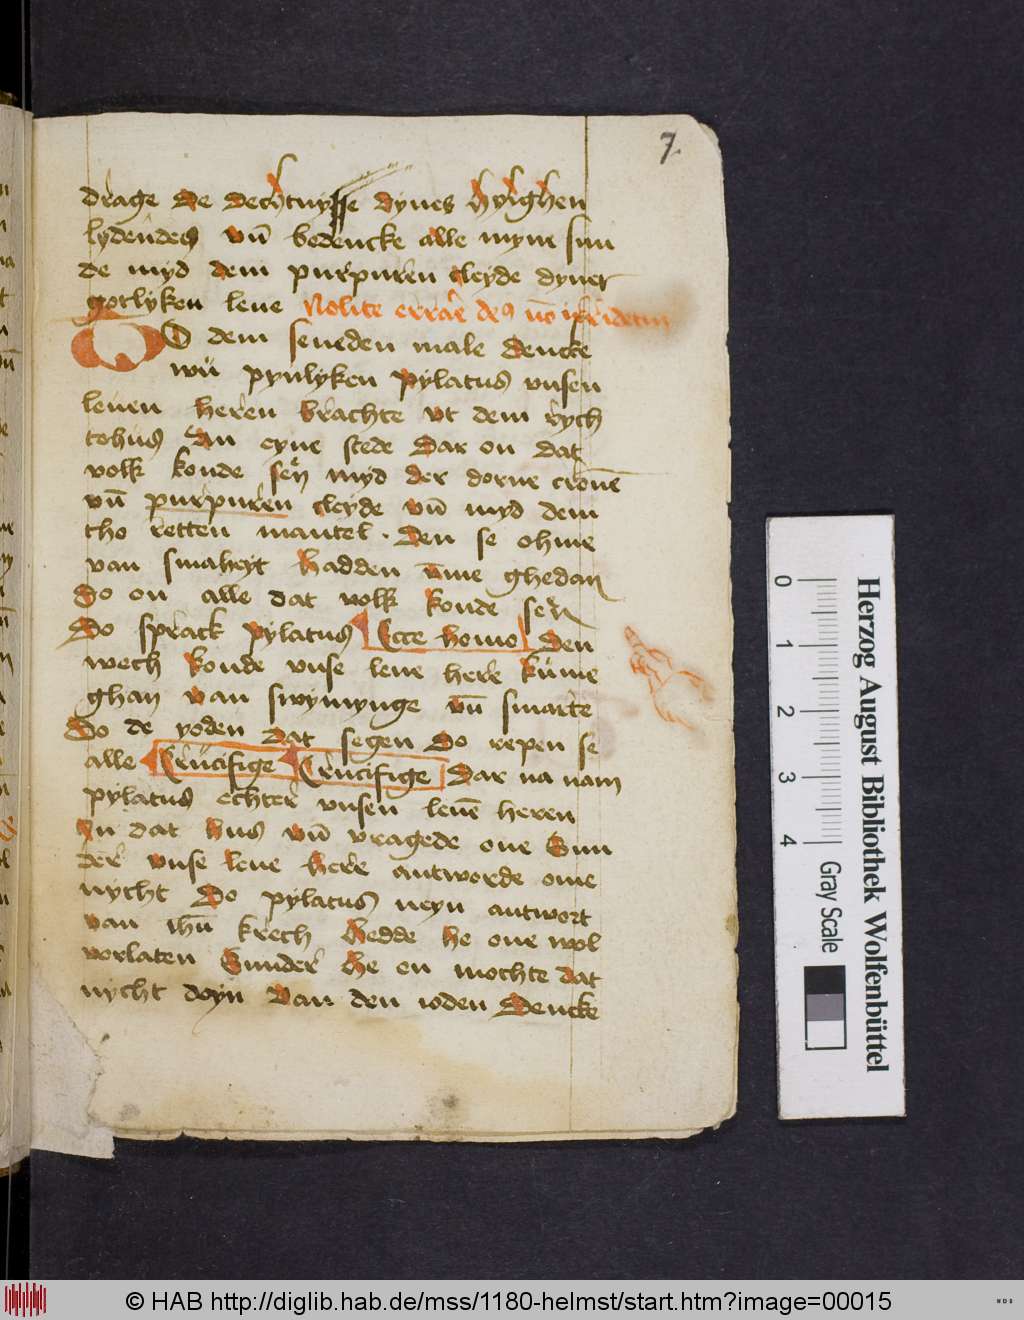 7
drage de dechtnysse dynes hylghen
lydendes vn̄ bedencke alle myne sun
de myd dem purpuren cleyde dyner
gotlyken leue Nolite errare deus nō irridetur
O dem seueden male dencke
wu pynlyken pylatus vnsen
leuen heren brachte vt dem rych
tehus an eyne stede dar on dat
volk konde seyn myd der dorne cronē
vn̄ purpuren cleyde vn̄ myd dem
tho retten mantel . den se ohme
van smaheyt hadden vmme ghedan
So on alle dat volk konde seen
Do sprack pylatus Ecce homo den
wech konde vnse leue here kume
ghan van swymynge vn̄ smarte
Do de yoden dat segen do repen se
alle Crucifige Crucifige Dar na nam
pylatus echter vnsen leuē heren
In dat hus vn̄ vragede one Sun
der vnse leue here antworde ome
nycht Do pylatus neyn antwort
van ihū krech hedde he one wol
vorlaten Sunder he en mochte dat
nycht doyn van den ioden Dencke
Herzog August Bibliothek Wolfenbüttel
0 1 2 3 4 Gray Scale
© HAB http://diglib.hab.de/mss/1180-helmst/start.htm?image=00015